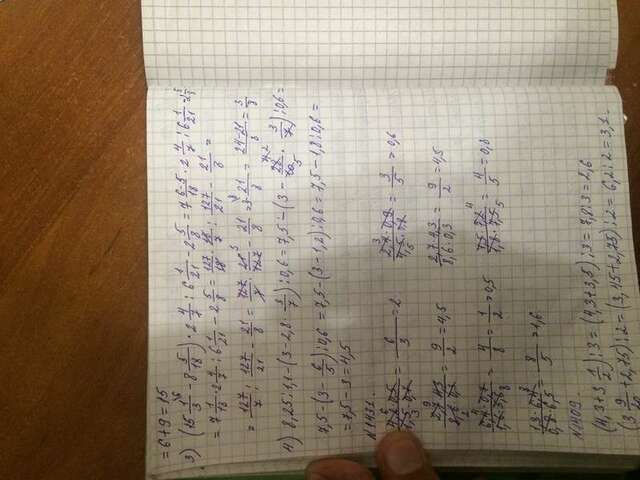 = 6 + 9 = 15
3) (15 1/3 - 8 5/18) · 2 4/7 : 6 1/21 - 2 5/8 = 7 6-5/18 · 2 4/7 : 6 1/21 - 2 5/8
= 7 1/18 · 2 4/7 : 6 1/21 - 2 5/8 = 127/18 · 18/7 : 127/21 - 21/8 =
= 127/7 : 127/21 - 21/8 = 127/7 · 21/127 - 21/8 = 3 - 21/8 = 24-21/8 = 3/8
4) 8,25 : 1,1 - (3 - 2,8 · 3/7) : 0,6 = 7,5 - (3 - 28/10 · 3/7) : 0,6 =
7,5 - (3 - 6/5) : 0,6 = 7,5 - (3 - 1,2) : 0,6 = 7,5 - 1,8 : 0,6 =
= 7,5 - 3 = 4,5
N1431.
= 6/3 = 2 2,7·0,9/4,5·1,8 = 3/5 = 0,6
2,7·4,3/8,6·0,3 = 9/2 = 4,5 2,7·4,3/8,6·0,3 = 9/2 = 4,5
= 4/8 = 1/2 = 0,5 = 4/5 = 0,8
1,3·6,4/0,8·6,5 = 8/5 = 1,6
N1409.
(4,3 + 3 1/2) : 3 = (4,3 + 3,5) : 3 = 7,8 : 3 = 2,6
(3 9/20 + 2,75) : 2 = (3,45 + 2,75) : 2 = 6,2 : 2 = 3,1